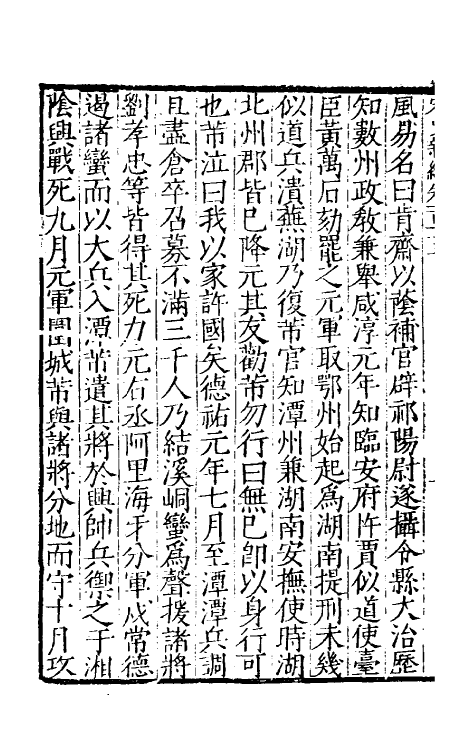 風易名曰肯齋以䕃補官辟祁陽尉遂攝令縣大治歷
知數州政敎兼舉咸淳元年知臨安府忤賈似道使臺
臣黃萬石劾罷之元軍取鄂州始起爲湖南提刑未幾
似道兵潰蕪湖乃復芾官知潭州兼湖南安撫使時湖
北州郡皆已降元其友勸芾勿行曰無已卽以身行可
也芾泣曰我以家許國矣德祐元年七月至潭潭兵調
且盡倉卒召募不滿三千人乃結溪峒蠻爲聲援諸將
劉孝忠等皆得其死力元右丞阿里海牙分軍戍常德
遏諸蠻而以大兵入潭芾遣其將於興帥兵禦之于湘
陰興戰死九月元軍圍城芾與諸將分地而守十月攻